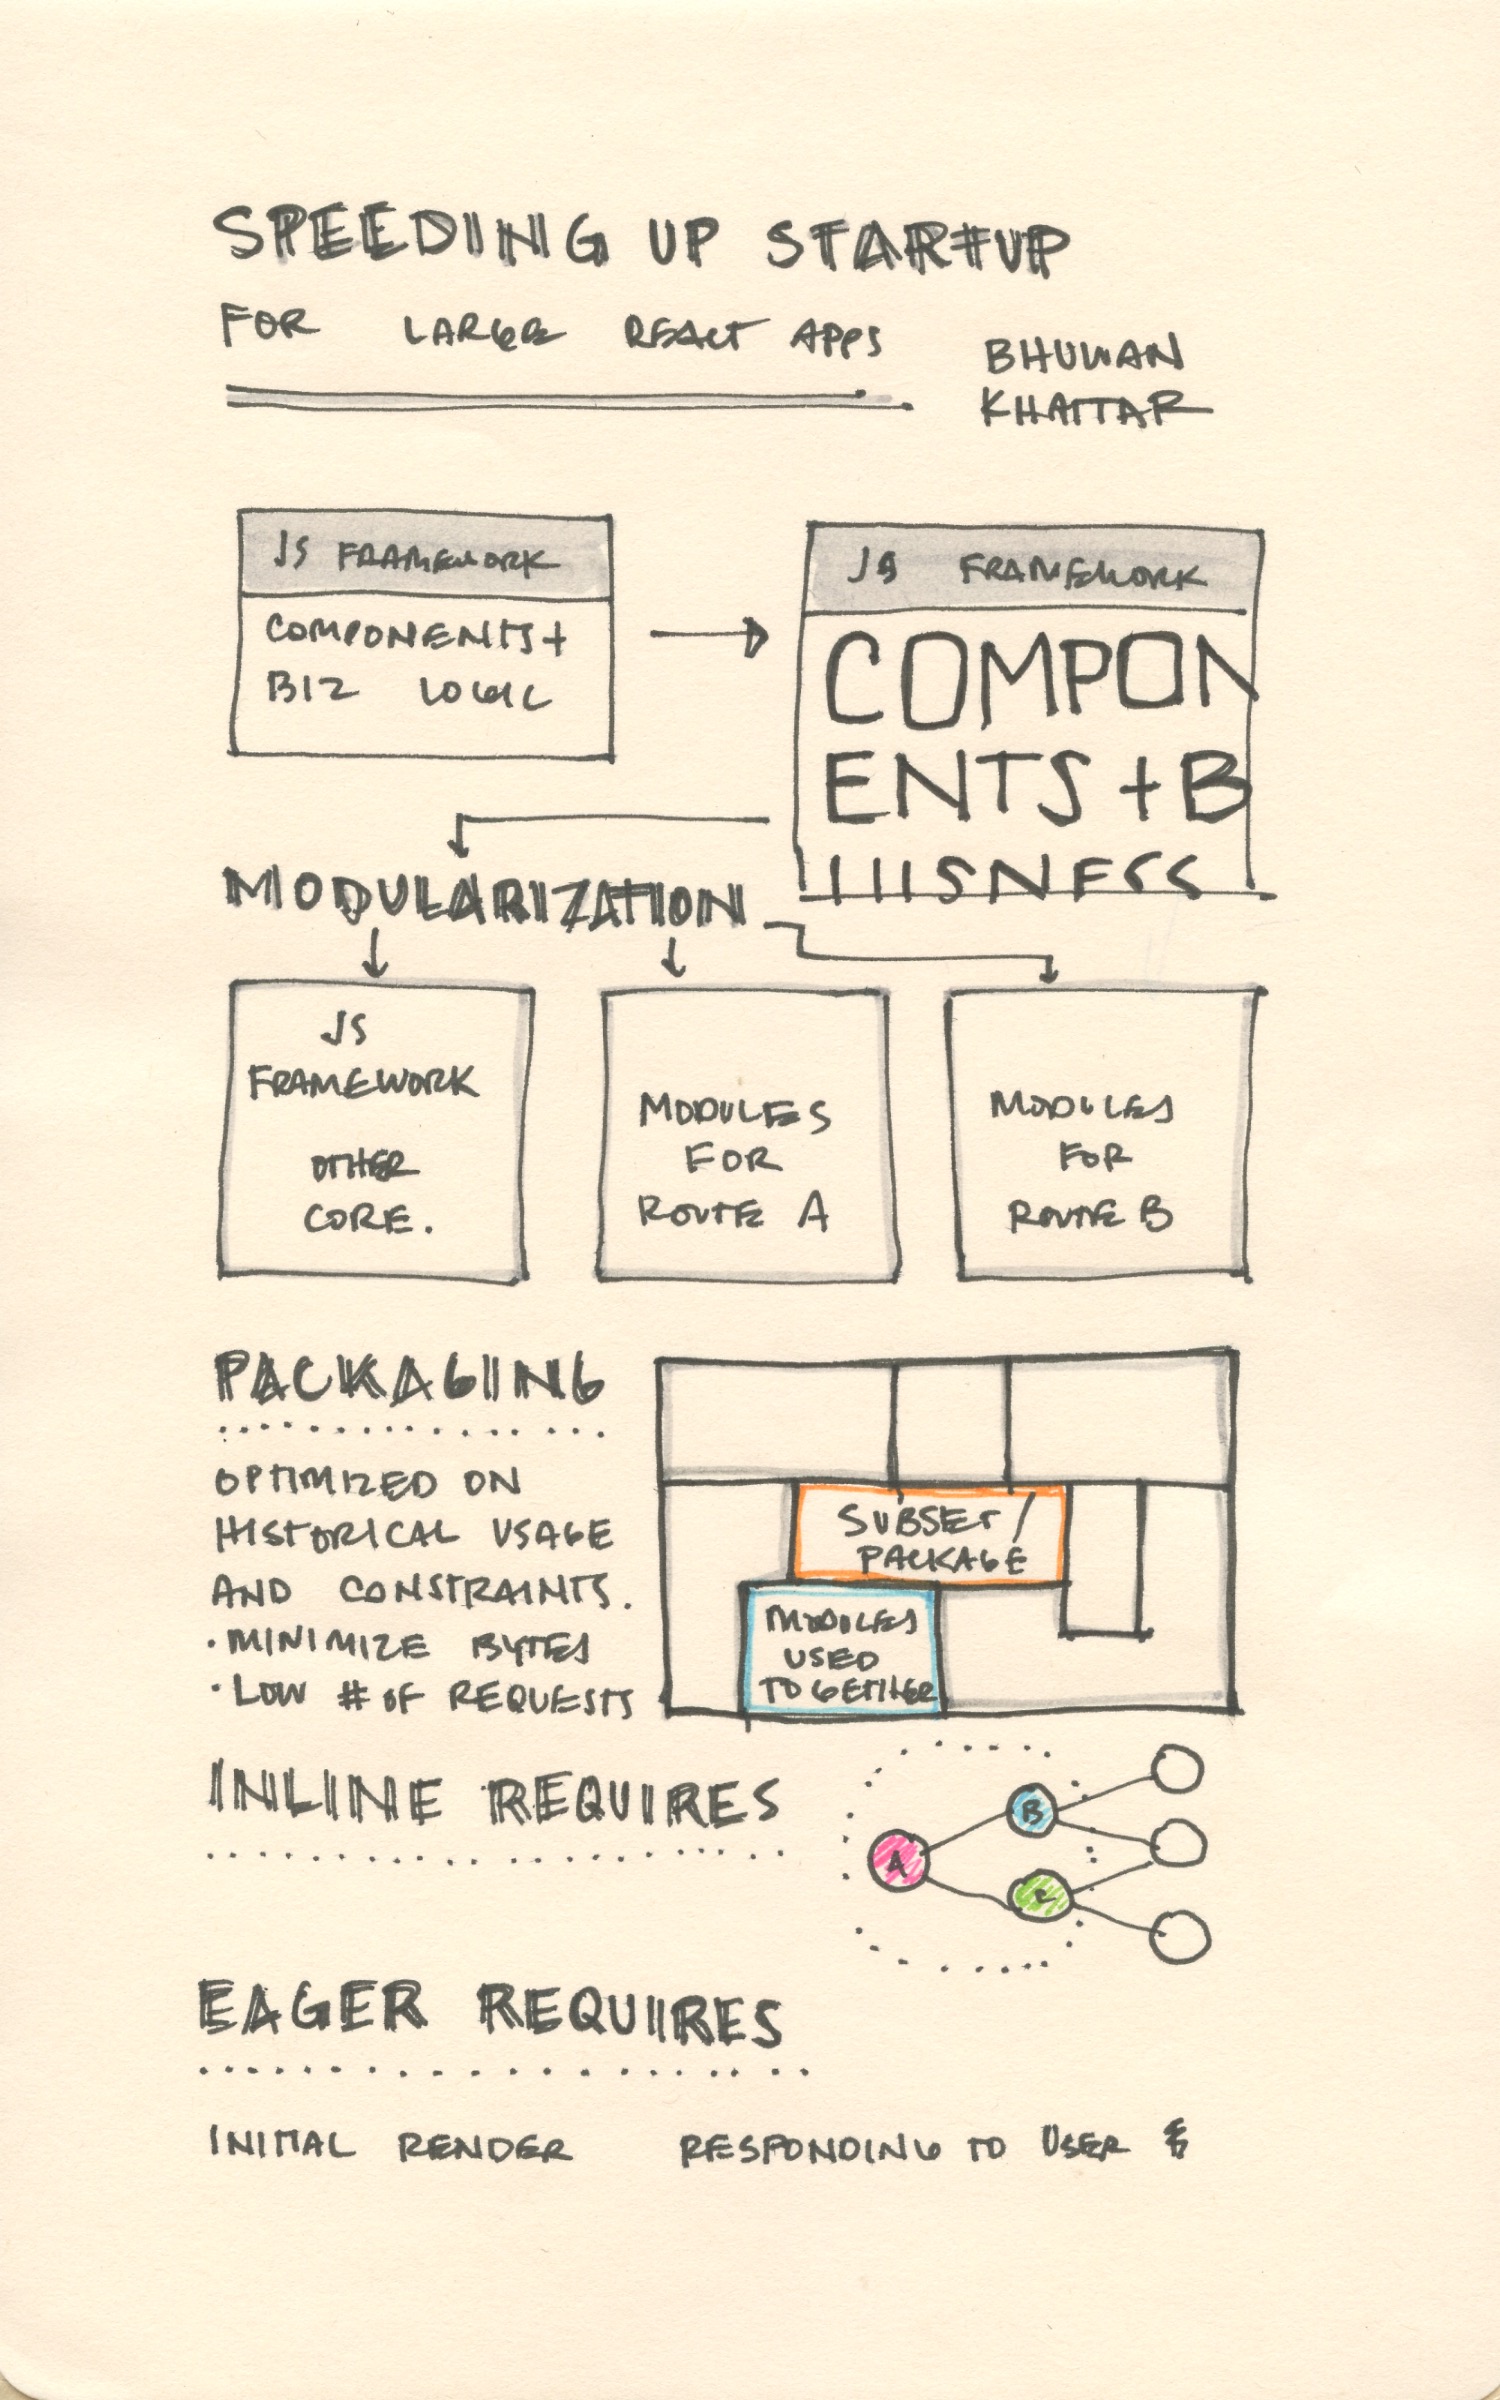 SPEEDING UP STARTUP
FOR LARGE REACT APPS
BHUWAN
KHATTAR
JS FRAMEWORK
COMPONENTS +
BIZ LOGIC
JS FRAMEWORK
COMPON
ENTS + B
MODULARIZATION
JS
FRAMEWORK
OTHER
CORE.
MODULES
FOR
ROUTE A
MODULES
FOR
ROUTE B
PACKAGING
OPTIMIZED ON
HISTORICAL USAGE
AND CONSTRAINTS.
· MINIMIZE BYTES
· LOW # OF REQUESTS
SUBSET /
PACKAGE
MODULES
USED
TOGETHER
INLINE REQUIRES
A
B
C
EAGER REQUIRES
INITIAL RENDER RESPONDING TO USER